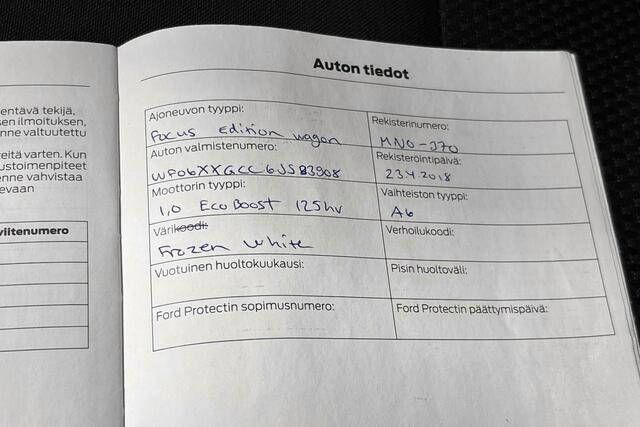 entävä tekijä,
sen ilmoituksen,
nne valtuutettu
eitä varten. Kun
ustoimenpiteet
enne vahvistaa
evaan
viitenumero
Auton tiedot
Ajoneuvon tyyppi:
Focus Edition wagon
Rekisterinumero:
MNO-270
Auton valmistenumero:
WF06XXGCC6JS83908
Rekisteröintipäivä:
23.4.2018
Moottorin tyyppi:
1,0 EcoBoost 125hv
Vaihteiston tyyppi:
A6
Värikoodi:
Frozen White
Verhoilukoodi:
Vuotuinen huoltokuukausi:
Pisin huoltoväli:
Ford Protectin sopimusnumero:
Ford Protectin päättymispäivä: